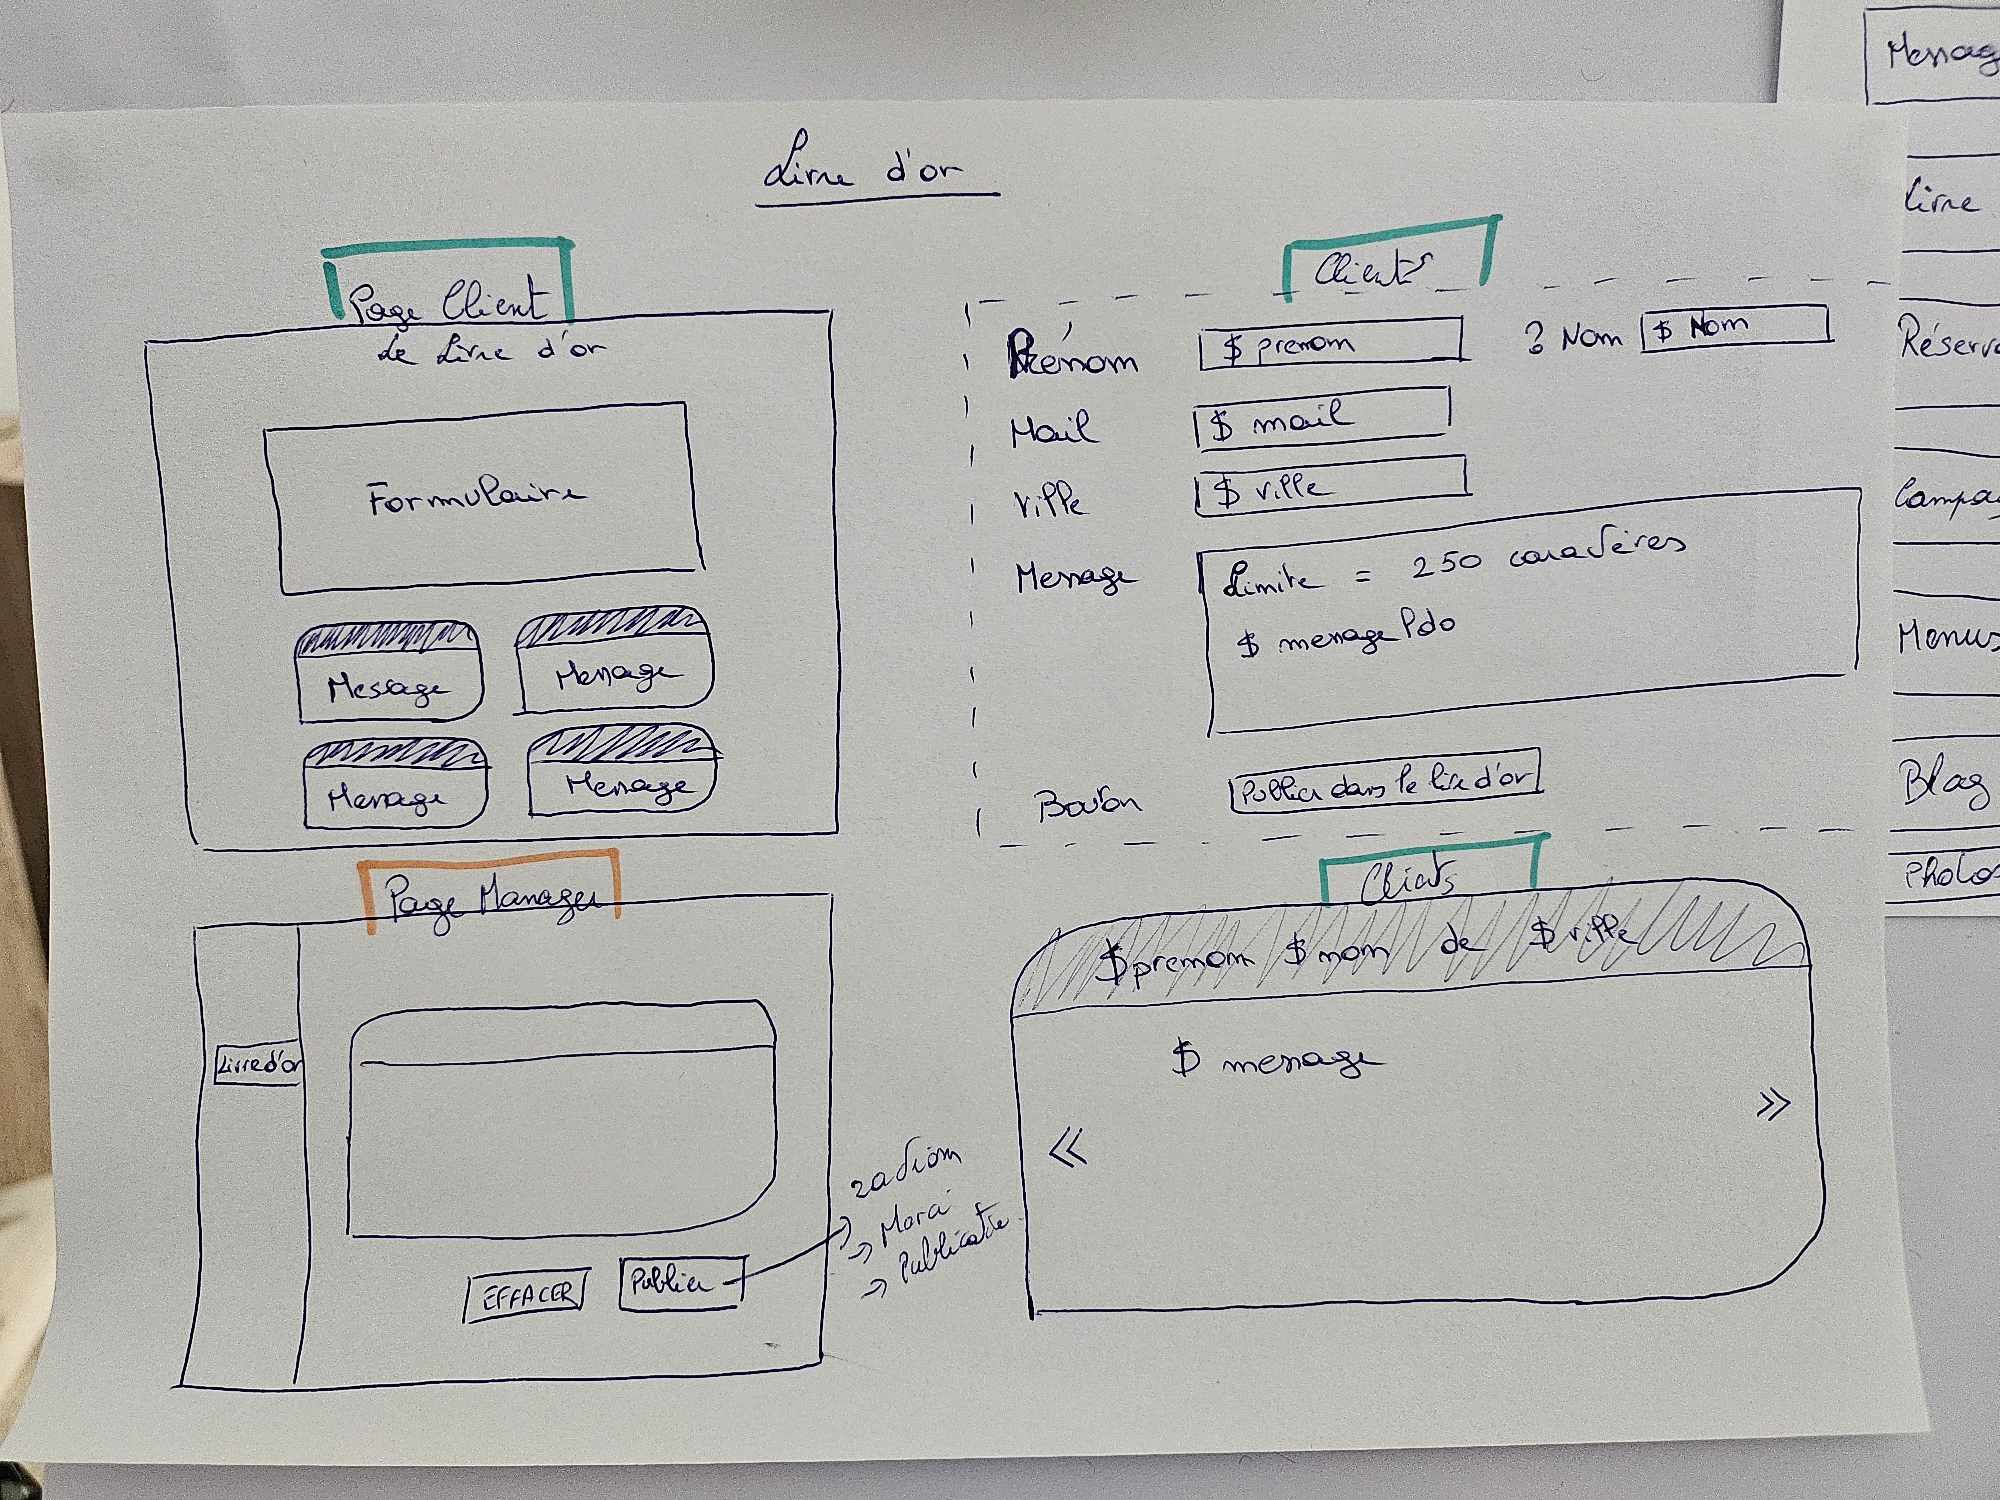 Livre d'or
Page Client
Le Livre d'or
Formulaire
Message
Message
Message
Message
Clients
Prénom
$ prenom
? Nom
$ Nom
Mail
$ mail
Ville
$ ville
Message
Limite = 250 caractères
$ message Pdo
Bouton
Publier dans le livre d'or
Page Manager
Livre d'or
EFFACER
Publier
Clients
$prenom $nom de $ville
$ message
«
»
Messag
Livre
Réserva
Campag
Menus
Blog
Photos